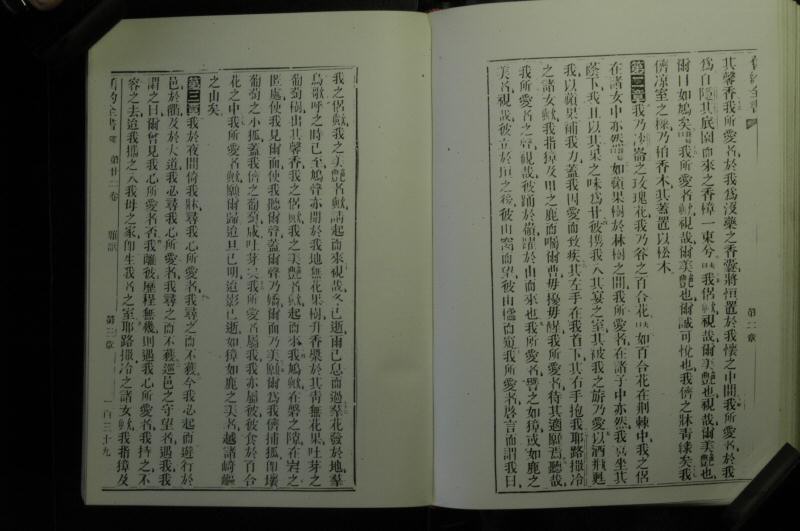 舊約全書
第二章
其馨香我所愛者於我爲沒藥之香囊將恒置於我懷之中間我所愛者於我
爲自隱其底園而來之香樟一束兮我侶歟視哉爾美艷也視哉爾美艷也
爾目如鳩矣我所愛者歟視哉爾美艷也爾誠可悅也我儕之牀靑綠矣我
儕凉室之樑乃栢香木其蓋置以松木
第二章我乃沙崙之玫瑰花我乃谷之百合花如百合花在荆棘中我之侶
在諸女中亦然如蘋果樹於林樹之間我所愛者在諸子中亦然我坐其
蔭下我且以其果之味爲甘彼携我入其宴之室其被我之旂乃愛以酒甁甦
我以蘋果補我力蓋我因愛而致疾其左手在我首下其右手抱我耶路撒冷
之諸女歟我指獐及田之鹿而囑爾曹毋擾毋醒我所愛者待其適願焉聽哉
我所愛者之聲視哉彼踊於嶺躍於山而來也我所愛者譬之如獐或如鹿之
美者視哉彼立於垣之後彼由窗而望彼由櫺而窺我所愛者啓言而謂我曰
我之侶歟我之美艷者歟請起而來視哉冬已逝雨已息而過羣花發於地羣
鳥歌呼之時已至鳩聲亦聞於我地無花果樹升香漿於其靑無花果吐芽之
葡萄樹出其馨香我之侶歟我之美艷者歟起而來我鳩歟在磐之隙在岩之
匿處使我見爾面使我聽爾聲蓋爾聲乃嬌爾面乃美願爾爲我儕捕狐即壞
葡萄之小狐蓋我儕之葡萄咸吐芽矣我所愛者屬我我亦屬彼彼食於百合
花之中我所愛者歟願爾歸迨旦已明迨影已逝如獐如鹿之美者越諸崎嶇
之山矣
第三章我於夜間倚我牀尋我心所愛者我尋之而不獲今我必起而遊行於
邑於衢及於大道我必尋我心所愛者我尋之而不獲巡邑之守望者遇我我
謂之曰爾曾見我心所愛者否我離彼歷程無幾則遇我心所愛者我持之不
容之去迨我攜之入我母之家即生我者之室耶路撒冷之諸女歟我指獐及
舊約全書 第廿二卷 雅歌 第三章 一百三十九